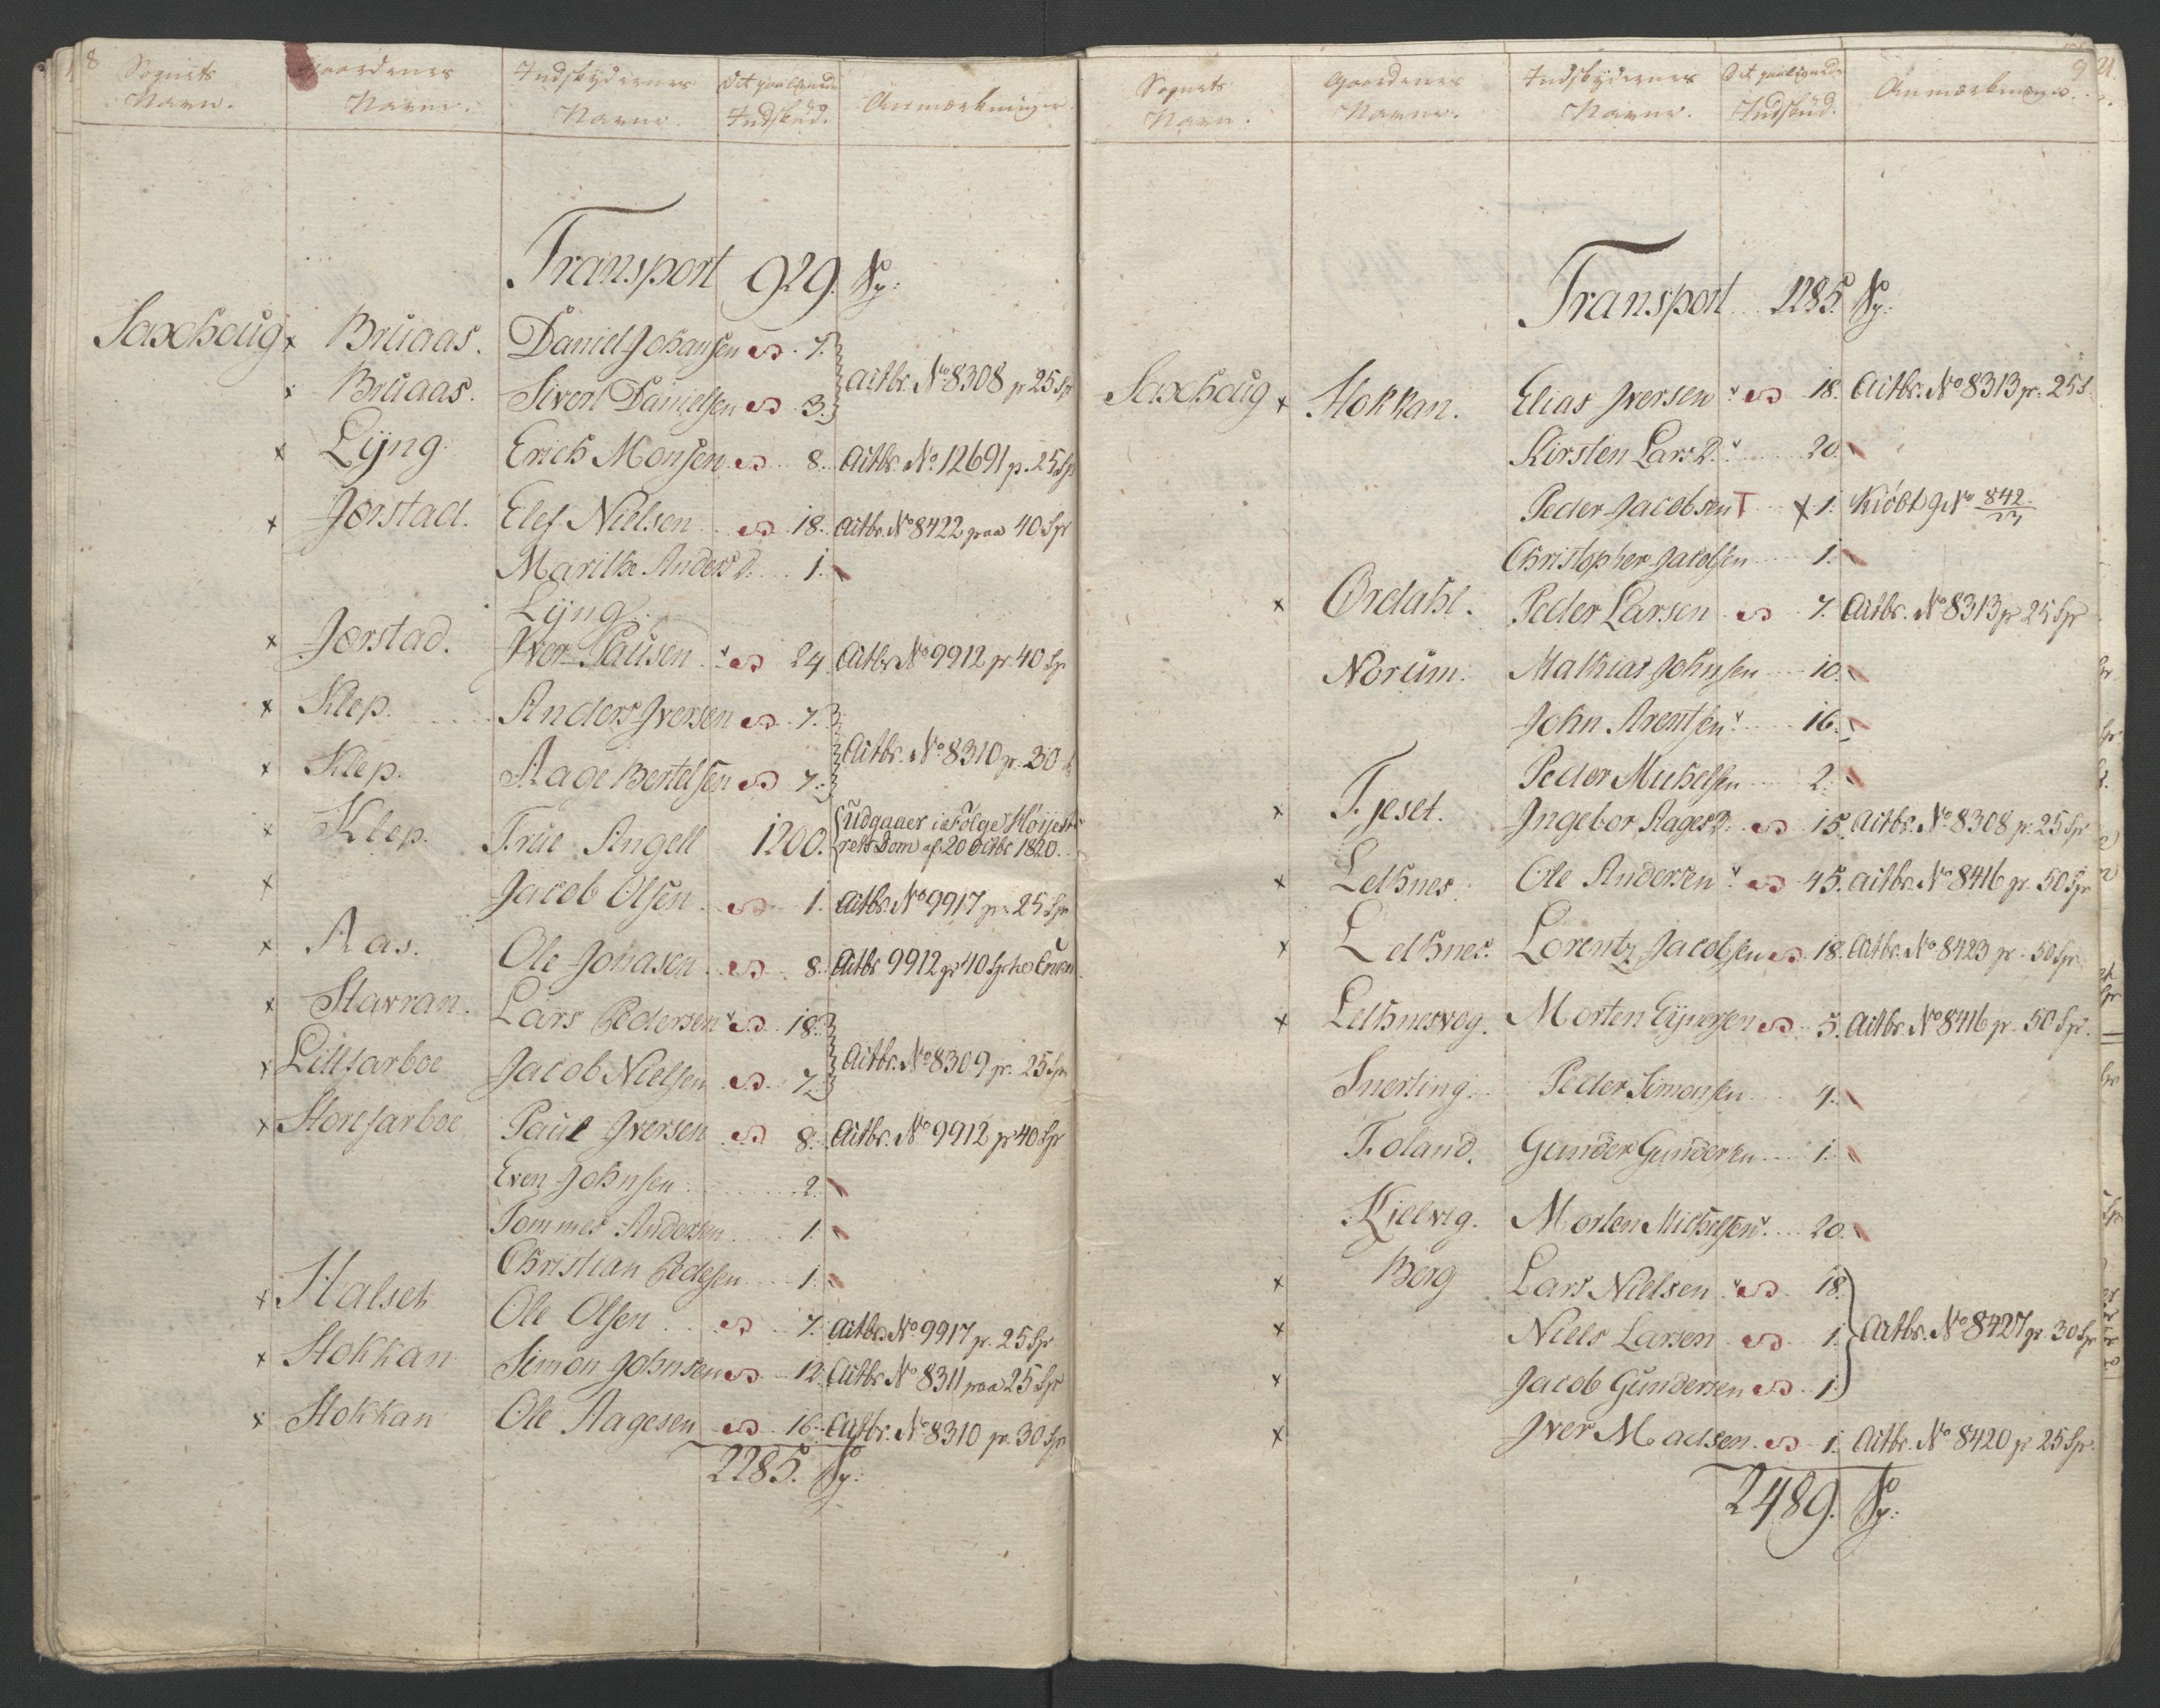 8
Sognets Navn. Gaardenes Navne. Indskydernes Navne. Det paalignede Indskud. Anmærkninger.
Transport 929. Sp:
Saxhoug x Bruaas. Daniel Johansen 7.
Actbr. No 8308 pr 25 Sp
x Bruaas. Sivert Danielsen 3.
x Lÿng Erich Monsen 8. Actbr. No 12691 p. 25 Sp
x Jørstad. Elef Nielsen 18. Actbr. No 8422 paa 40 Spr
Marithe Anders D. 1.
Lÿng.
x Jørstad. Iver Pausen 24. Actbr No 9912 pr 40 Sp
x Klep. Anders Iversen 7.
Actbr. No 8310 pr. 30
x Klep. Aage Bertelsen 7.
x Klep. Frue Angell 1200. Udgaaer i Følge Høijeste
rets Dom af 20 Octbr 1820.
x Jacob Olsen 1. Actbr. No 9917 pr. 25 Spr
x Aas. Ole Johasen 8. Actbr 9912 pr 40 Spr
x Stavran. Lars Pedersen 18.
Actbr. No 8309 pr. 25 Spr
x Lillsarboe Jacob Nielsen 7.
x Storesarboe Paul Iversen 8. Actbr. No 9912 pr 40 Spr
Even Johnsen 2.
Tommes Andersen 1.
Christian Pedersen 1.
x Halset Ole Olsen 7. Actbr. No 9917 pr. 25 Spr
x Stokkan Simon Johnsen 12. Actbr No 8311 paa 25 Spr
x Stokkan Ole Aagesen 16. Actbr. No 8310 pr. 30 Sp
2285. Sp:
9
Sognets Navn. Gaardenes Navne. Indskydernes Navne. Det paalignede Indskud. Anmærkninger.
Transport 2285. Sp:
Saxhoug x Stokkan. Elias Iversen 18. Actbr. No 8313 pr. 25 S
Kirsten Lars D. 20.
Peder Jacobsen T x 1. Kiøbt g No 842
Christopher Jacobsen 1.
x Ørdahl. Peder Larsen 7. Actbr. No 8313 pr 25 Spr
Norum. Mathias Johnsen 10.
John Arentsen 16.
Peder Michelsen 2.
x Tjeset. Ingebor Aages D. 15. Actbr. No 8308 p. 25 Spr
x Lethnes. Ole Andersen 45. Actbr. No 8416 pr. 50 Spr
x Lethnes. Lorentz Jacobsen 18. Actbr. No 8423 pr. 50 Spr.
x Lethnesvog. Morten Ejnersen 5. Actbr. No 8416 pr. 50 Spr.
Snerting. Peder Simonsen 4.
Foland. Gunder Gundersen 1.
Kjelvig. Morten Michelsen 20.
x Berg Lars Nielsen 18.
x Niels Larsen 1. Actbr. No 8427 pr. 30 Spr
x Jacob Gundersen 1.
x Iver Madsen. 1. Actbr. No 8420 pr 25 Spr.
2489. Sp: